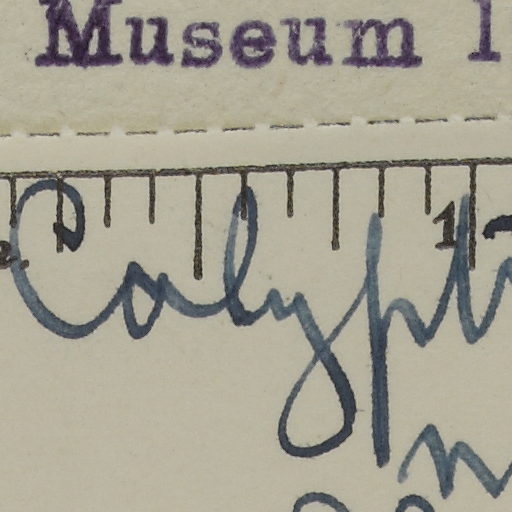 Museum
1
Calypt